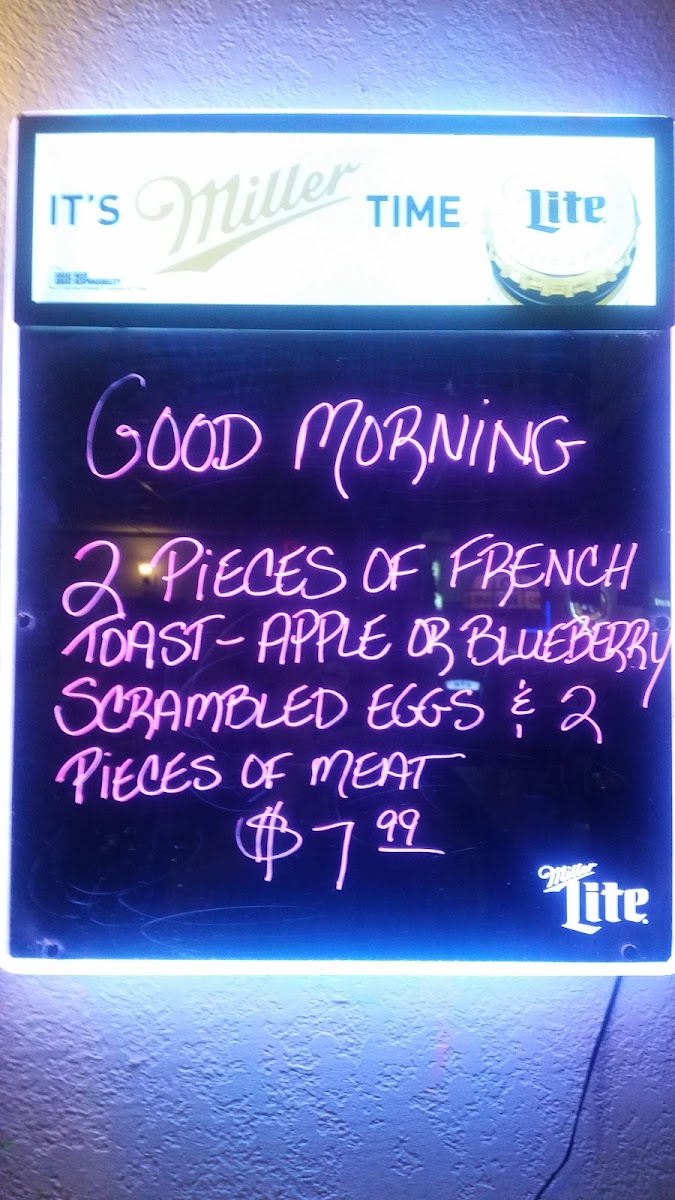 IT'S Miller TIME Lite
GOOD MORNING
2 PIECES OF FRENCH
TOAST - APPLE OR BLUEBERRY
SCRAMBLED EGGS & 2
PIECES OF MEAT
$7 99
Miller
Lite